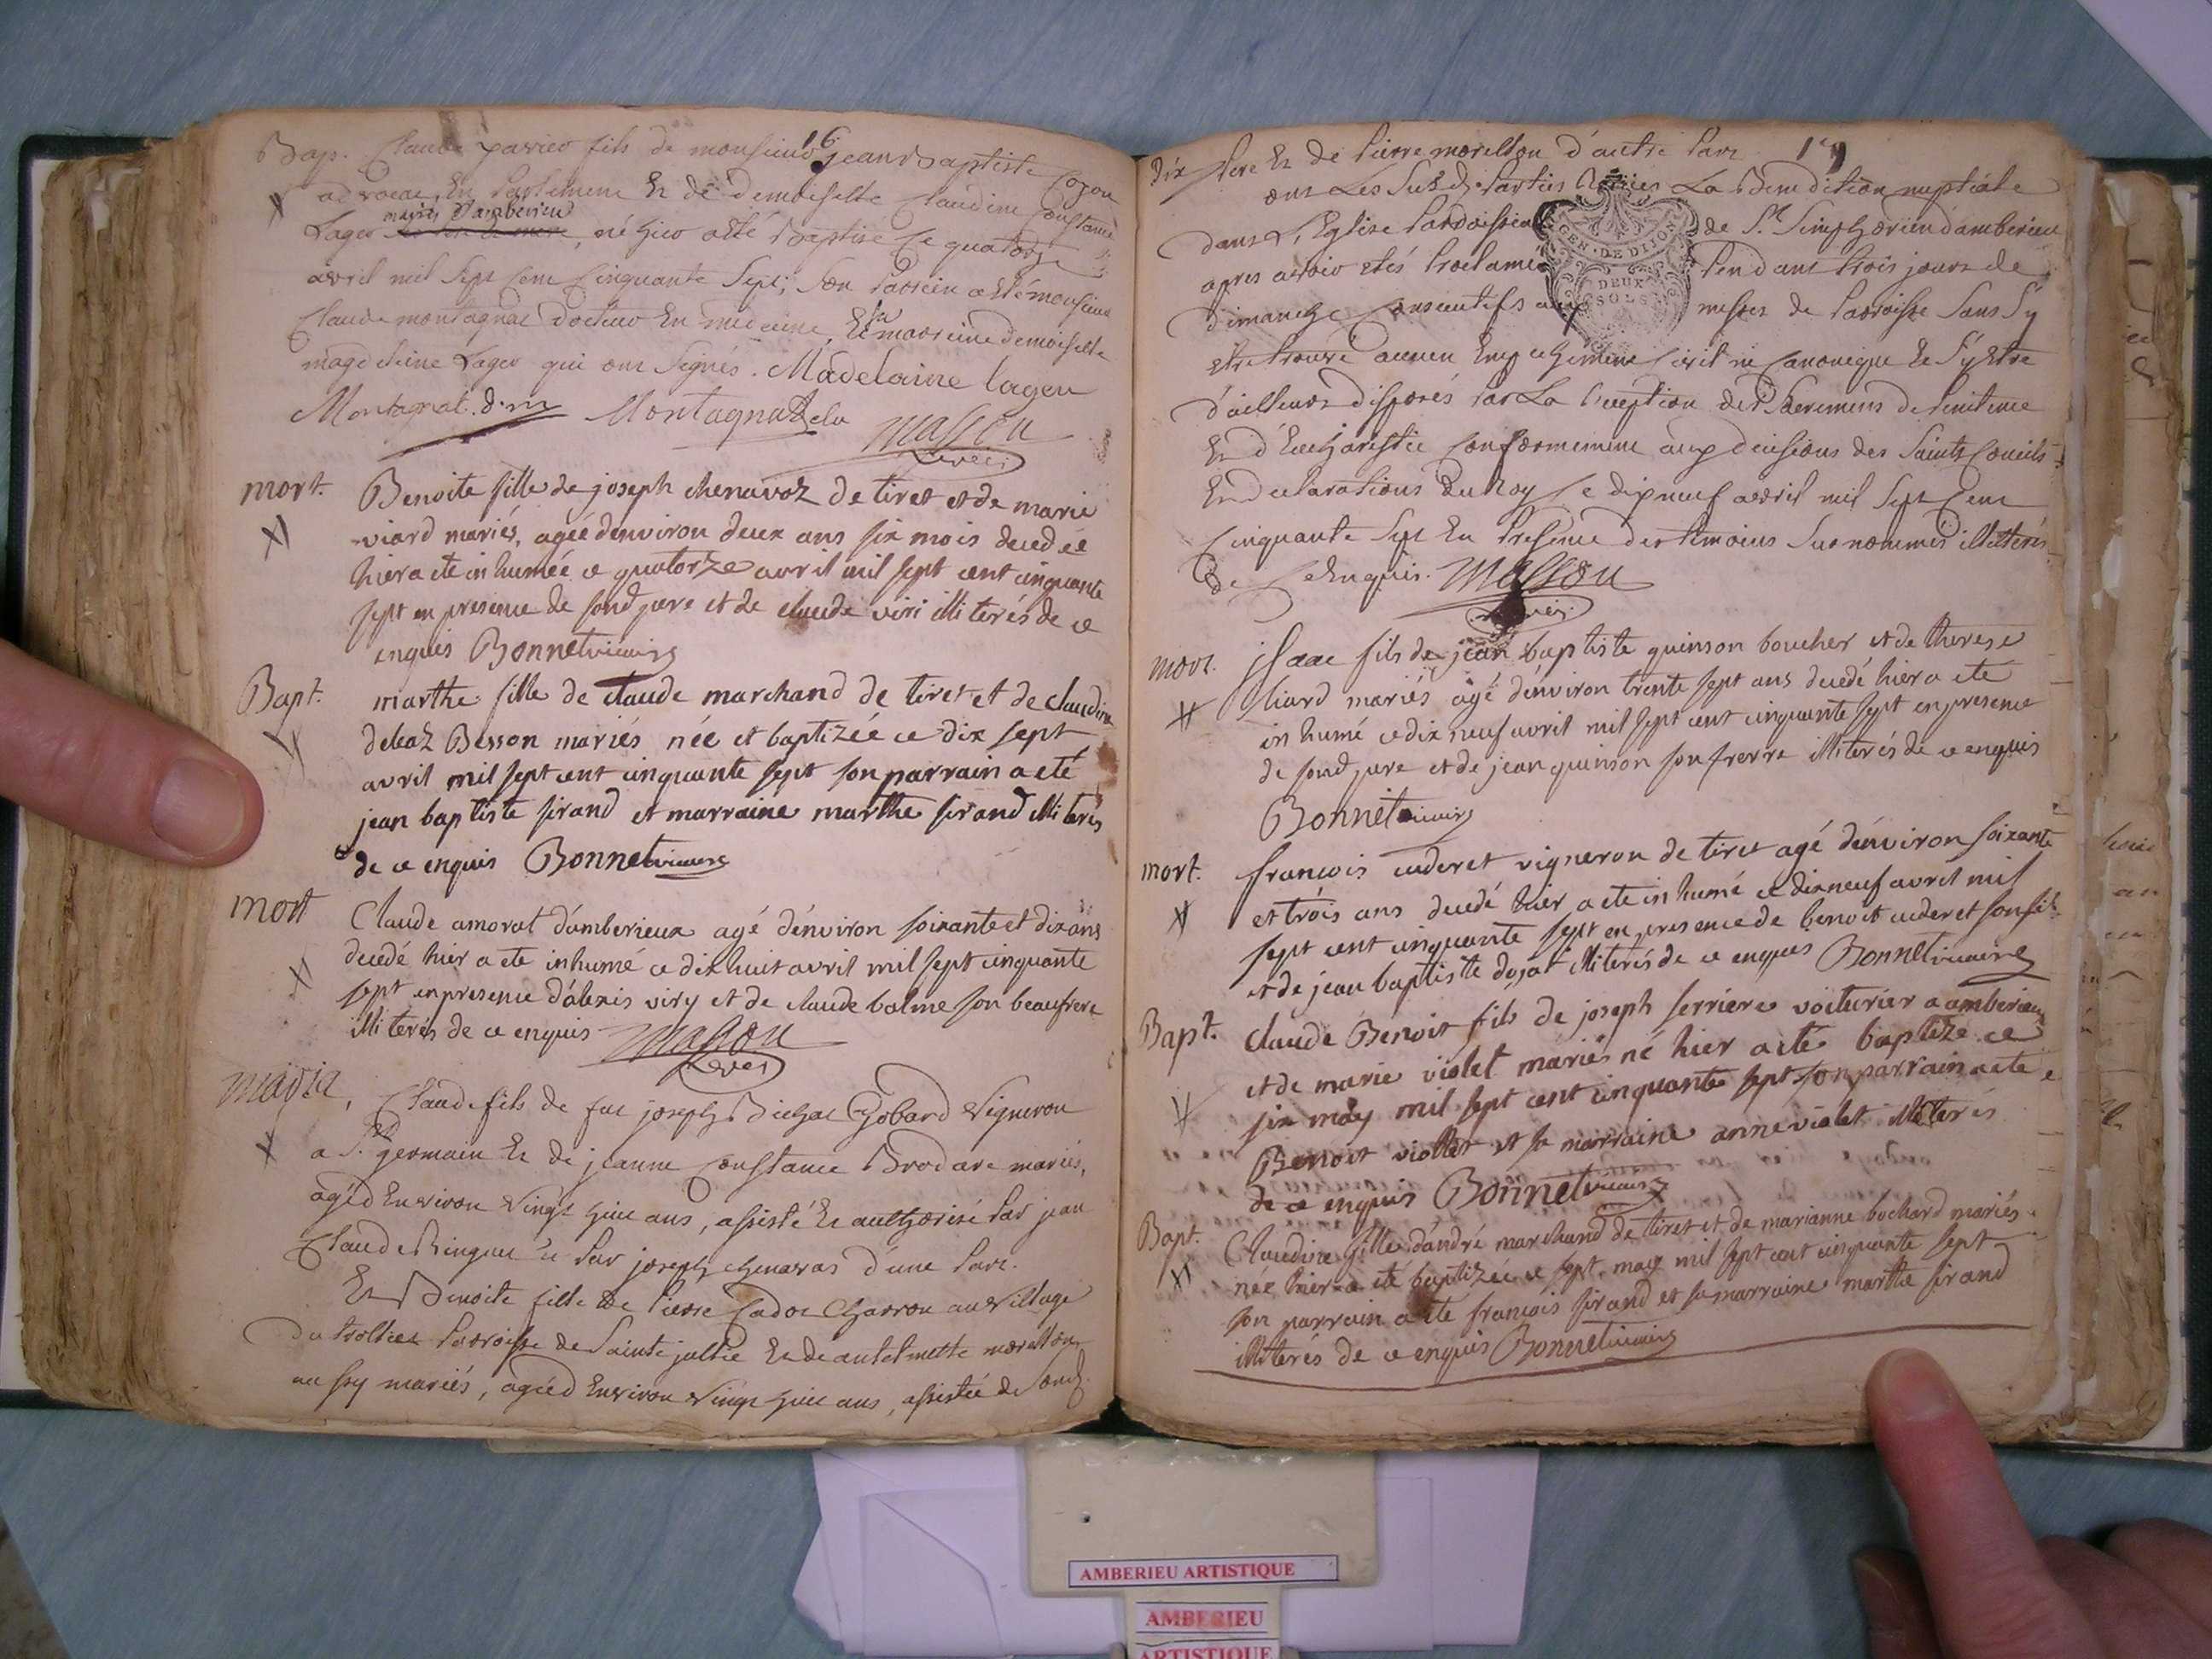 16
Bap. Claude xavier fils de monsieur jean Baptiste Cozon
advocat En Parlement Et de demoiselle Claudine Constance
mariés d'amberieu
Lager né hier a eté Baptisé Ce quatorze
avril mil Sept Cent Cinquante Sept; Son Parrein a eté monsieur
Claude montagnat docteur En medecine, Et sa marreine demoiselle
magdeleine Lager qui ont Signés. Madelaine lager
Montagnat d.m Montagnat Masson
curé
mort. Benoite fille de joseph chenavaz de tiret et de marie
viard mariés, agée d'environ deux ans six mois decedée
hier a ete inhumée ce quatorze avril mil sept cent cinquante
sept en presence de sond pere et de claude viri illiterés de ce
enquis Bonnet vicaire
Bapt. marthe fille de claude marchand de tiret et de claudine
Besson mariés née et baptizée ce dix sept
avril mil sept cent cinquante sept son parrain a eté
jean baptiste sirand et marraine marthe sirand illiterés
de ce enquis Bonnet vicaire
mort Claude amorat d'amberieux agé d'environ soixante et dix ans
decedé hier a ete inhumé ce dix huit avril mil sept cinquante
sept en presence d'alexis viry et de claude balme son beaufrere
illiterés de ce enquis Masson
curé
Claude fils de feu joseph Bichat Gobard Vigneron
a St. germain Et de jeanne Constance Brodare mariés,
agé d'Environ Vingt huit ans, assisté Et authorisé Par jean
Claude Et Par joseph chenavas d'une Part.
Et Benoite fille de Pierre Cadot Charron au Village
du Paroisse de Sainte jullie Et de antelmette morellon
aussy mariés, agée d'Environ Vingt huit ans, assistée de Sond.
17
dix Pere Et de Pierre morellon d'autre Part
ont Les Susd. Parties La Benediction nuptiale
dans L'Eglise Parroissialle de St. Simphorien d'amberieu
apres avoir etés Proclamés Pendant trois jours de
dimanche Consecutifs aux messes de Parroisse Sans S'y
etre trouvé aucun Empechement Civil ni Canonique Et S'y Etre
d'ailleurs disposés Par La reception des Sacremens de Penitence
Et d'Eucharistie Conformement aux decisions des Saints Conciles
Et declarations du Roy Ce dix neuf avril mil Sept Cent
Cinquante Sept En Presence des temoins Susnommés illiterés
de Ce Enquis. Masson
curé
mort. jsaac fils de jean baptiste quinson boucher et de therese
liard mariés agé d'environ trente sept ans decedé hier a ete
inhumé ce dix neuf avril mil sept cent cinquante sept en presence
de sond pere et de jean quinson son frerre illiterés de ce enquis
Bonnet vicaire
mort. francois cuderet vigneron de tiret agé d'environ soixante
et trois ans decedé hier a ete inhumé ce dix neuf avril mil
sept cent cinquante sept en presence de benoit cuderet son fils
et de jean baptiste dojat illiterés de ce enques Bonnet vicaire
Bapt. claude Benoit fils de joseph serriere voiturier a amberieux
et de marie violet mariés né hier a ete baptizé ce
six may mil sept cent cinquante sept son parrain a ete
Benoit viollet et sa marraine anne violet illiterés
de ce enquis Bonnet vicaire
Bapt. Claudine fille d'andré marchand de tiret et de marianne bochard mariés
née hier a eté baptizée ce sept may mil sept cent cinquante sept
son parrain a ete francois sirand et sa marraine marthe sirand
illiterés de ce enquis Bonnet vicaire
GEN · DE DIJON
DEUX
SOLS
AMBERIEU ARTISTIQUE
AMBERIEU
ARTISTIQUE